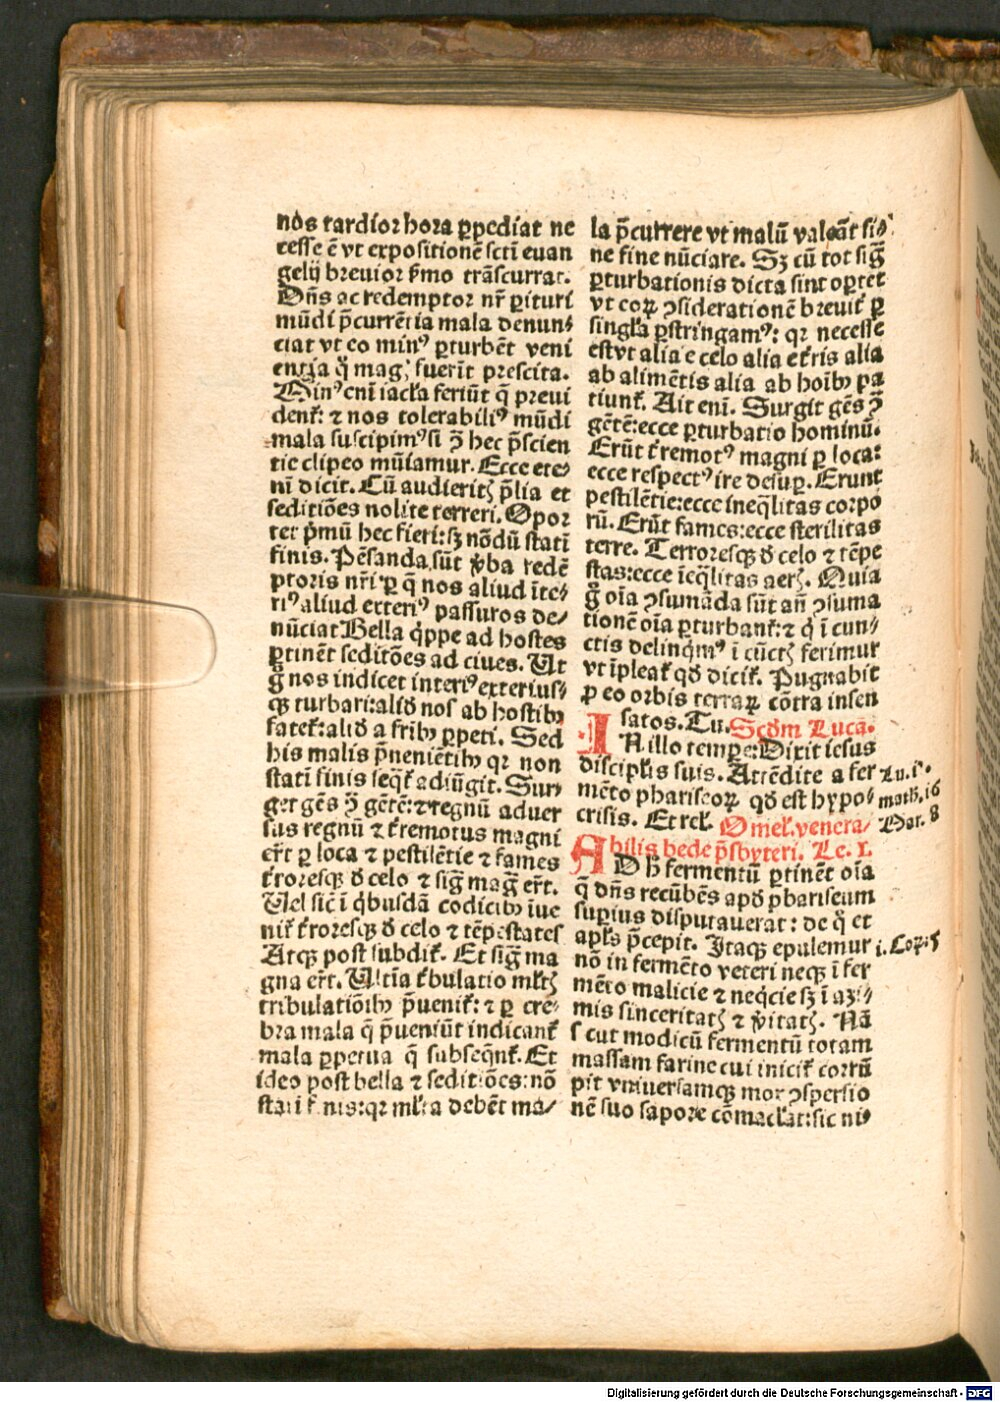 nos tardior hora ꝑpediat ne
cesse ē vt expositionē scti euan
gelij breuior s̄mo trāscurrat.
Dn̄s ac redemptor nr̄ ꝑituri
mūdi p̄currētia mala denun⸗
ciat vt eo minꝰ ꝑturbēt veni
entia q̈ magꝭ fuerīt prescita.
Minꝰ eni iacła feriūt q̄ preui
denť: ⁊ nos tolerabiliꝰ mūdi
mala suscipimꝰ si ꝯ̄ hec p̄scien
tie clipeo mūiamur. Ecce ete⸗
nī dicit. Cū audieritꝭ p̄lia et
seditiōes nolite terreri. Opor
tet p̄mū hec fieri: sꝫ nōdū statī
finis. Pēsanda sūt v̄ba redē
ptoris nr̄i ꝑ q̄ nos aliud īte⸗
riꝰ aliud exteriꝰ passuros de⸗
nūciat Bella q̇ppe ad hostes
ꝑtinēt seditōes ad ciues. Ut
g̊ nos indicet interiꝰ exterius⸗
qꝫ turbari: aliđ nos ab hostibꝰ
fateť: aliđ a frībꝰ ꝑpeti. Sed
his malis p̄neniētibꝰ qꝛ non
statī finis seq̇ť adiūgit. Sur⸗
get gēs ꝯ̄ gētē: ⁊ regnū aduer
sus regnū ⁊ ťremotus magni
er̄t ꝑ loca ⁊ pestilētie ⁊ fames
ťroresqꝫ đ celo ⁊ siḡ maḡ er̄t.
Uel sic ī q̇busdā codicibꝰ īue
niť ťroresqꝫ đ celo ⁊ tēpestates
Atqꝫ post subdiť. Et siḡ ma
gna er̄t. Ultīa ťbulatio młtꝭ
tribulatiōibꝰ p̄ueniť: ⁊ ꝑ cre⸗
bra mala q̄ p̄ueniūt indicanť
mala ꝑpetua q̄ subseq̄nť. Et
ideo post bella ⁊ seditiōes: nō
statī finis: qꝛ młta debēt ma⸗
la p̄currere vt malū valeāt si⸗
ne fine nūciare. Sꝫ cū tot siḡ
ꝑturbationis dicta sint oꝑtet
vt coꝝ ꝯsiderationē breuiť ꝑ
singła ꝑstringamꝰ: qꝛ necesse
est vt alia e celo alia e ťris alia
ab alimētis alia ab hoībꝰ pa
tiunť. Ait eni. Surgit gēs ꝯ̄
gētē: ecce ꝑturbatio hominū.
Erūt ťremotꝰ magni ꝑ loca:
ecce respectꝰ ire desuꝑ. Erunt
pestilētie: ecce ineq̄litas corpo
rū. Erūt fames: ecce sterilitas
terre. Terroresqꝫ đ celo ⁊ tēpe
stas: ecce īeq̄litas aerꝭ. Quia
g̊ oīa ꝯsumāda sūt añ ꝯsuma
tionē oīa ꝑturbanť: ⁊ q̇ ī cun⸗
ctis delinq̇mꝰ ī cūctꝭ ferimur
vt īpleať qđ diciť. Pugnabit
ꝑ eo orbis terraꝝ cōtra insen
satos. Tu. Scđm Lucā.
IN illo tempe: Dixit iesus
discipłis suis. Attēdite a fer
mēto phariseoꝝ qđ est hypo⸗
crisis. Et reł. Omeł. venera⸗
bilis bede p̄sbyteri. Le. I.
AD h̄ fermentū ꝑtinēt oīa
q̄ dn̄s recūbēs apđ phariseum
supius disputauerat: de q̊ et
apłs p̄cepit. Itaqꝫ epulemur
nō in fermēto veteri neqꝫ ī fer
mēto malicie ⁊ neq̇cie sꝫ ī azi⸗
mis sinceritatꝭ ⁊ v̄itatꝭ. Nā
scut modicū fermentū totam
massam farine cui iniciť corrū
pit vniuersamqꝫ mox ꝯspersio
nē suo sapore cōmacłat: sic ni⸗
Lu. i⸗.
math. 16
Mar. 8
i. Coꝝ. 5
Digitalisierung gefördert durch die Deutsche Forschungsgemeinschaft - DFG